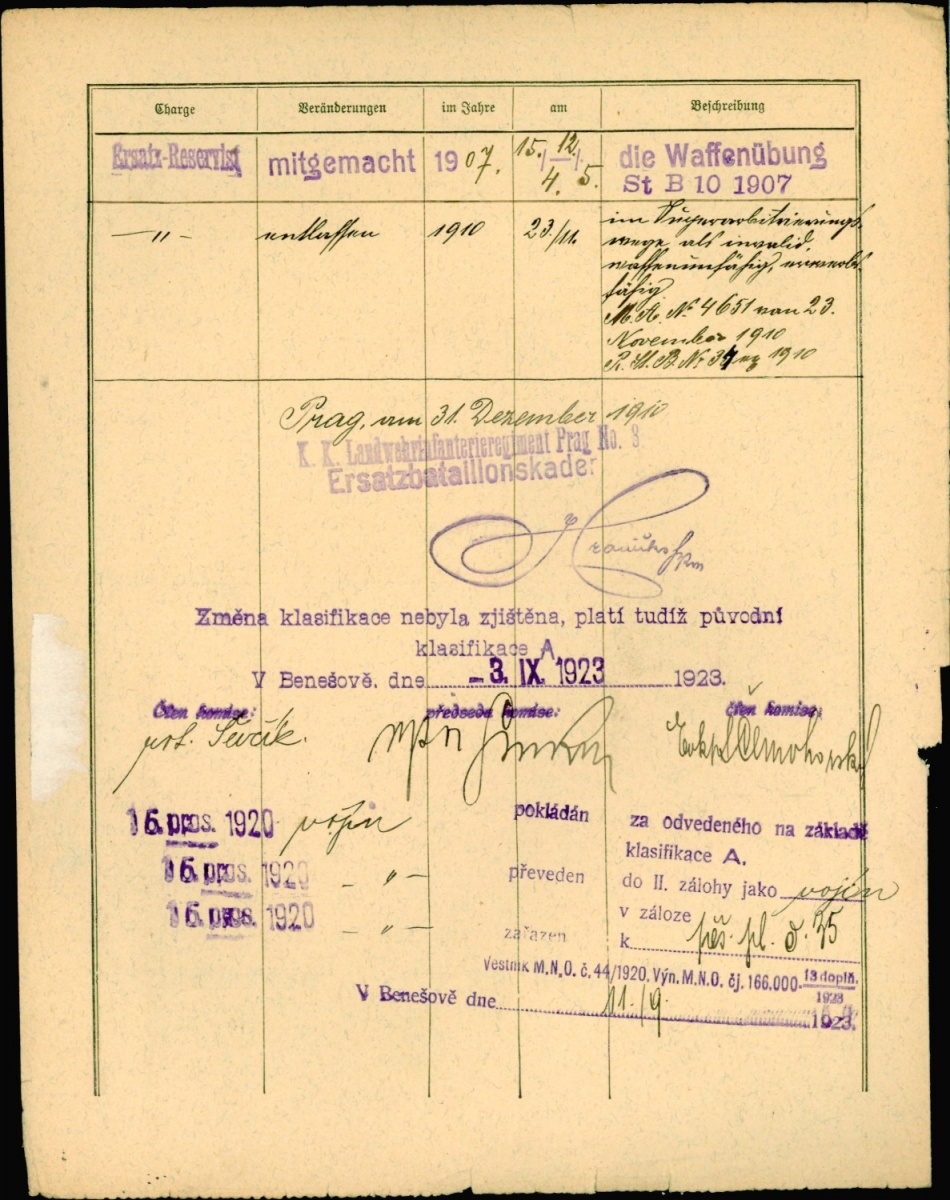 Charge Veränderungen im Jahre am Beschreibung
Ersatz-Reservist mitgemacht 1907. 15./4. 12/5. die Waffenübung
St B 10 1907
—〃— entlassen 1910 23./11. im Superarbitrierungs-
wege als invalid,
waffenunfähig, erwerbs-
fähig
M. A. No 4651 von 23.
November 1910
1910
Prag, am 31. Dezember 1910
K. K. Landwehrinfanterieregiment Prag No. 8
Ersatzbataillonskader
Změna klasifikace nebyla zjištěna, platí tudíž původní
klasifikace A
V Benešově, dne - 3. IX. 1923 1923.
Člen komise: předseda komise: člen komise:
Ševčík.
16. pros. 1920 vojín pokládán za odvedeného na základě
klasifikace A.
16. pros. 1920 — 〃 — převeden do II. zálohy jako vojín
v záloze
16. pros. 1920 — 〃 — zařazen k pěš. pl. č. 35
Věstník M.N.O. č. 44/1920. Výn. M.N.O. čj. 166.000-13 doplň./1923
V Benešově dne 11./9. 1923.